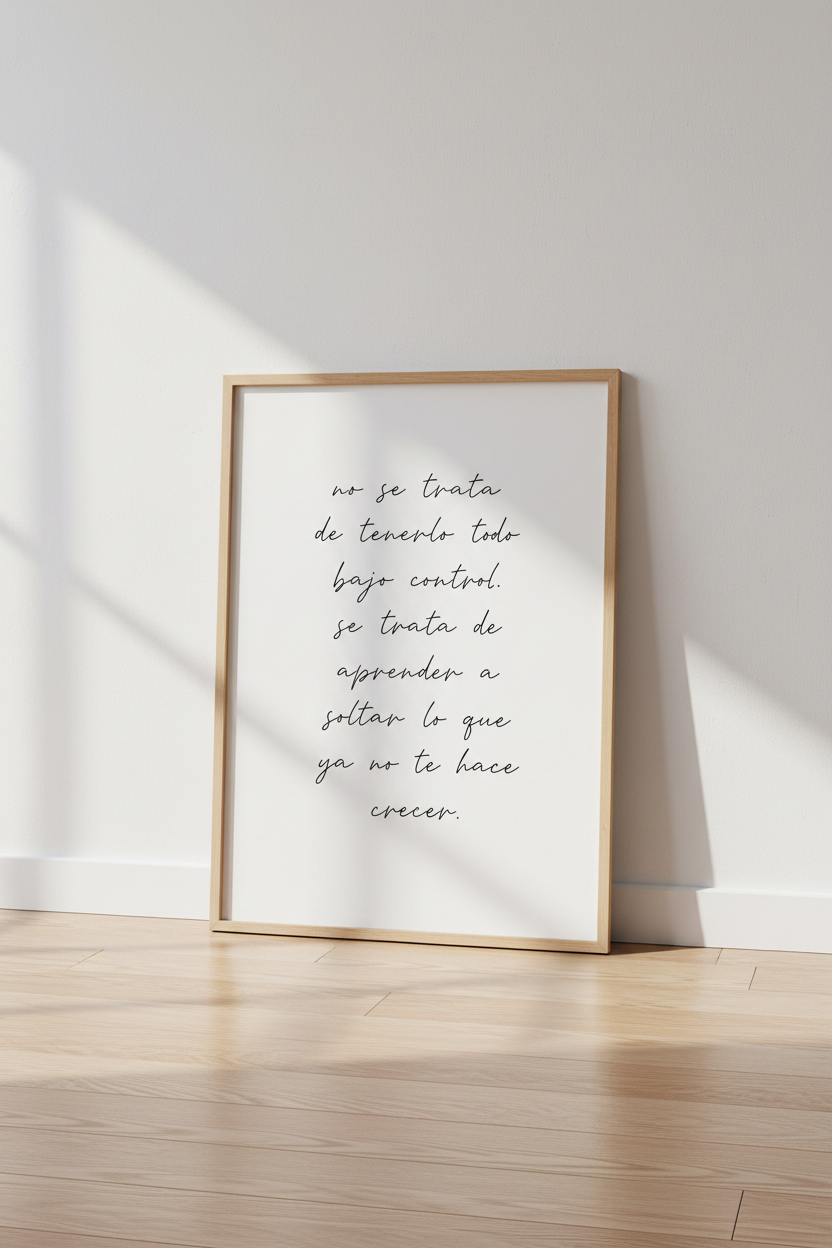 no se trata
de tenerlo todo
bajo control.
se trata de
aprender a
soltar lo que
ya no te hace
crecer.